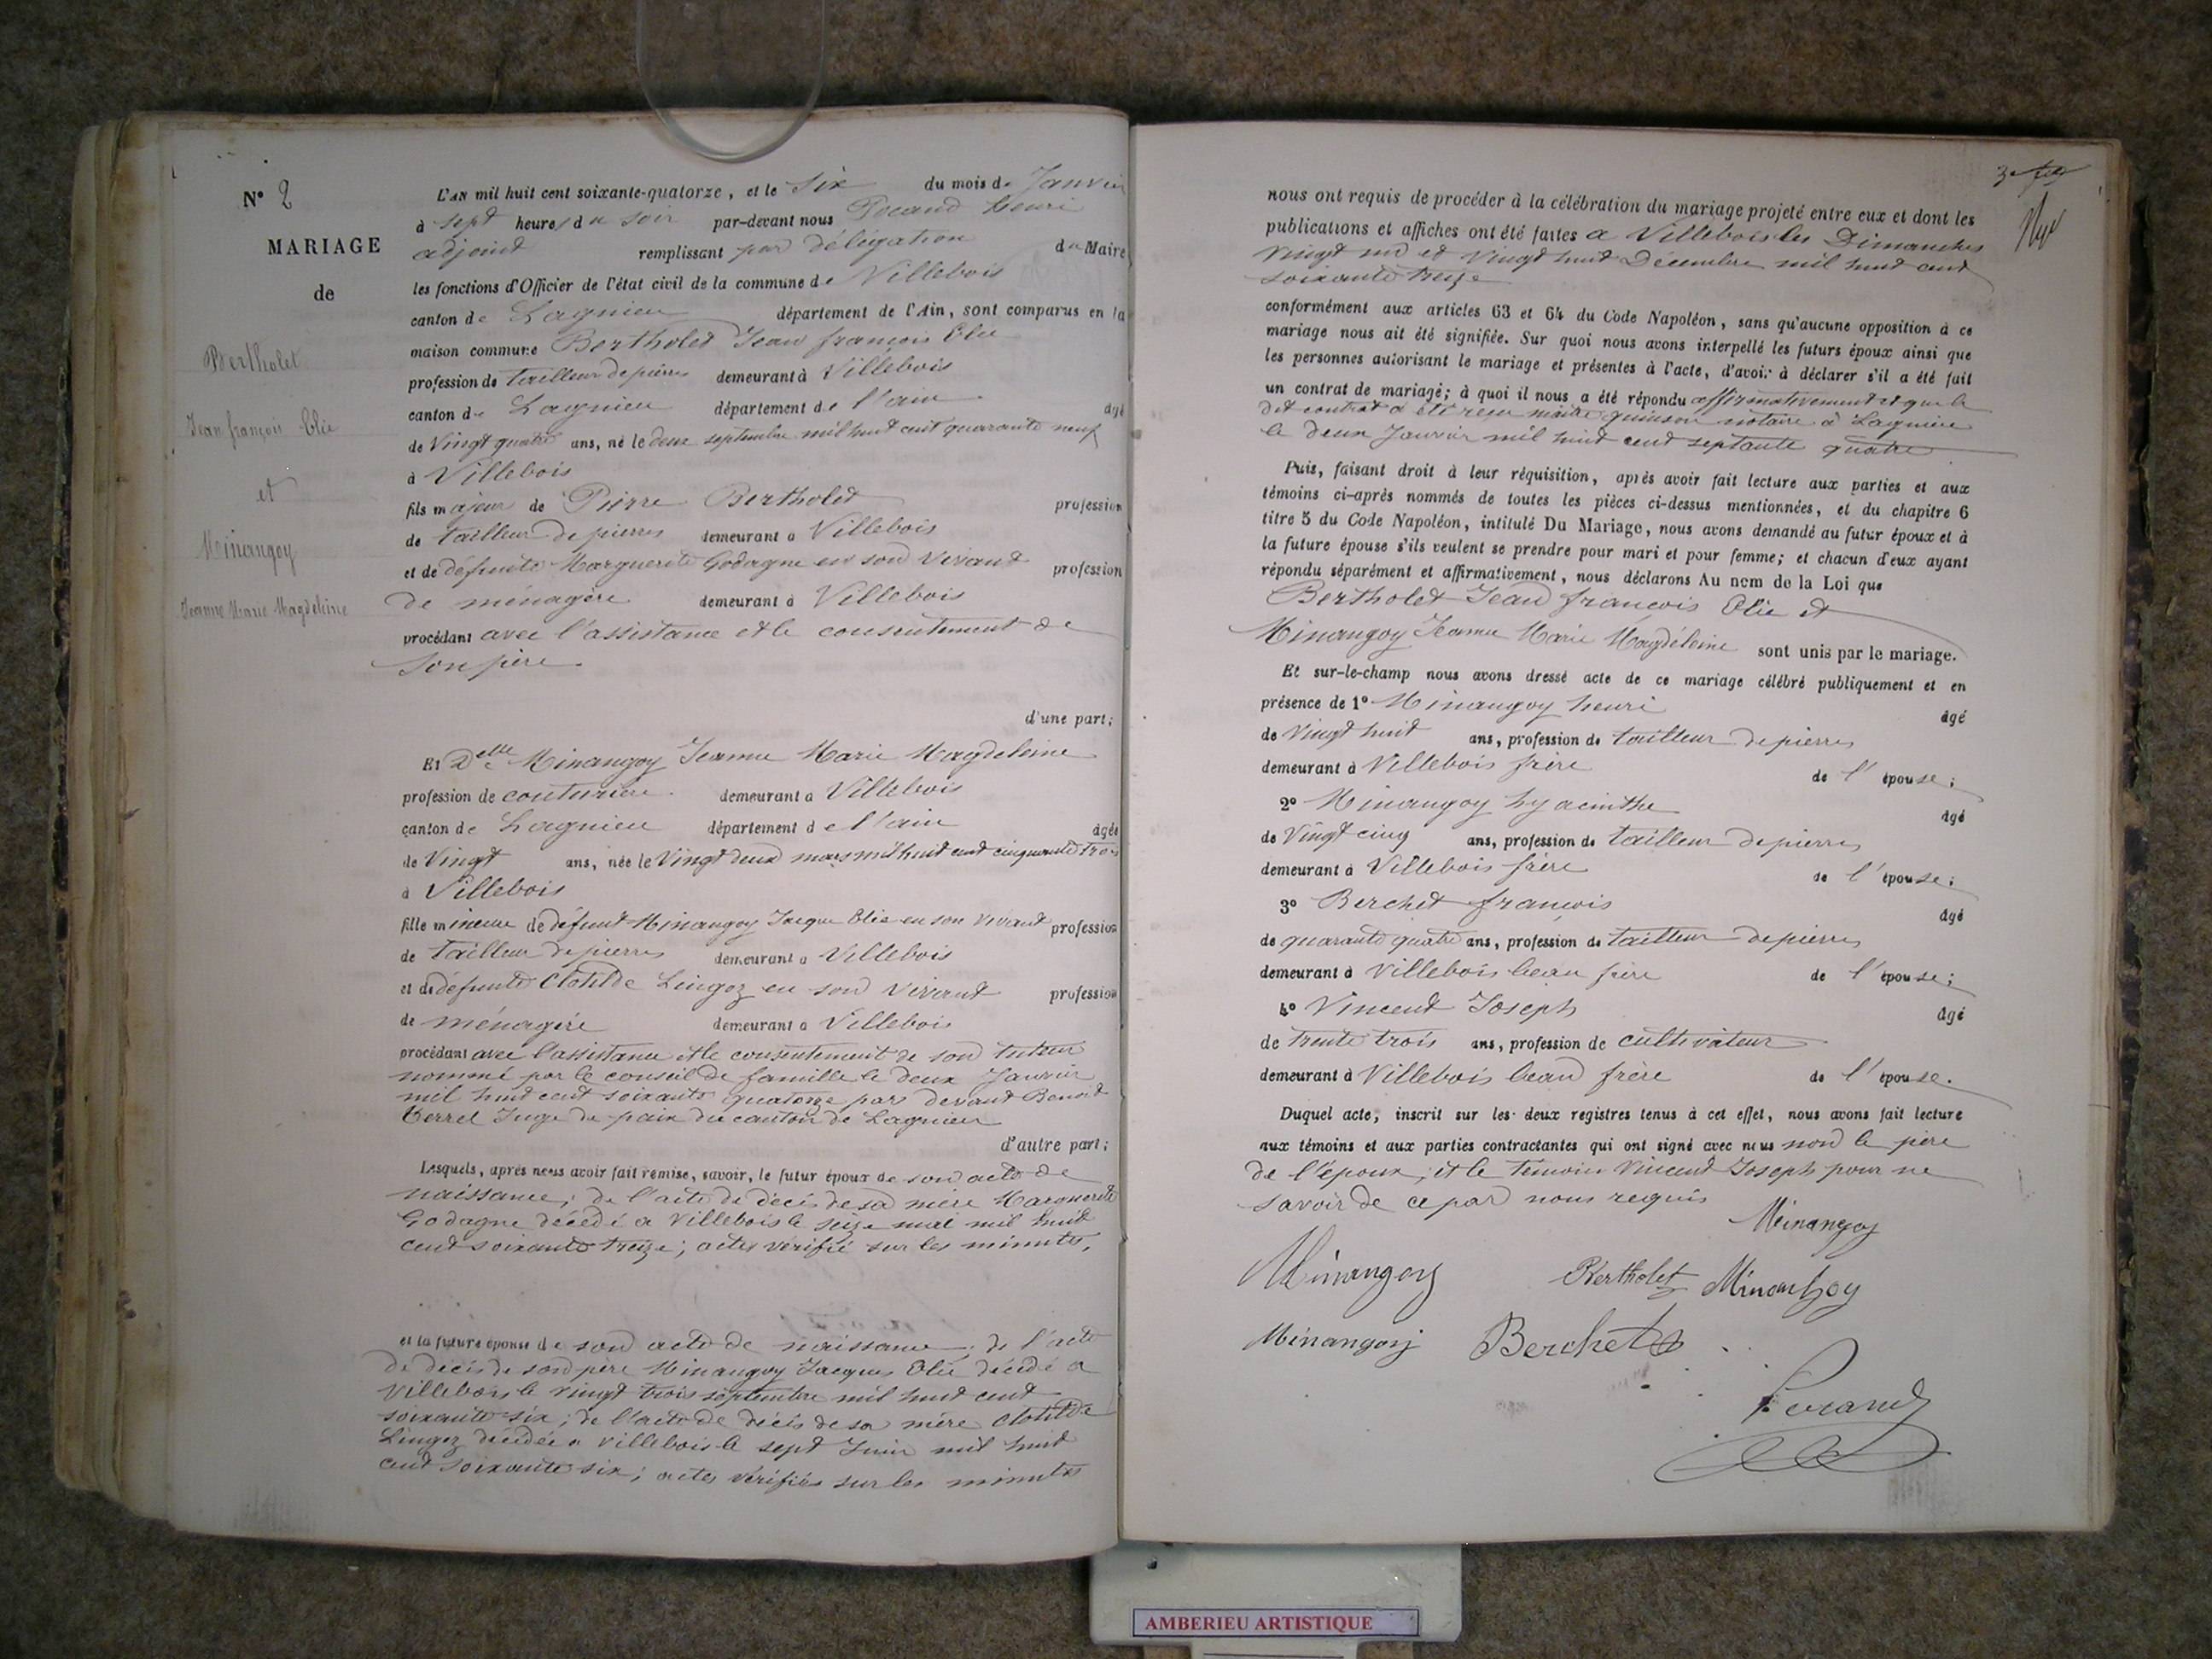 N° 2
MARIAGE
de
Bertholet
Jean françois Elie
et
Minangoy
Jeanne Marie Magdeleine
L'AN mil huit cent soixante-quatorze, et le Six du mois de Janvier
à sept heures du soir par-devant nous Pocand henri
adjoint remplissant par délégation du Maire
les fonctions d'Officier de l'état civil de la commune de Villebois
canton de Lagnieu département de l'Ain, sont comparus en la
maison commune Bertholet Jean françois Elie
profession de tailleur de pierres demeurant à Villebois
canton de Lagnieu département de l'ain âgé
de Vingt quatre ans, né le deux septembre mil huit cent quarante neuf
à Villebois
fils majeur de Pierre Bertholet profession
de tailleur de pierres demeurant a Villebois
et de défunte Marguerite Godagne en son vivant profession
de ménagère demeurant à Villebois
procédant avec l'assistance et le consentement de
son père
d'une part;
Et Delle Minangoy Jeanne Marie Magdeleine
profession de couturière demeurant a Villebois
canton de Lagnieu département de l'ain âgée
de Vingt ans, née le Vingt deux mars mil huit cent cinquante trois
à Villebois
fille mineure de défunt Minangoy Jacque Elie en son vivant profession
de tailleur de pierres demeurant a Villebois
et de défunte Clotilde Lingoz en son vivant profession
de ménagère demeurant a Villebois
procédant avec l'assistance et le consentement de son tuteur
nommé par le conseil de famille le deux Janvier
mil huit cent soixante quatorze pars devant Benoit
Terrel Juge de paix du canton de Lagnieu
d'autre part;
Lesquels, après nous avoir fait remise, savoir, le futur époux de son acte de
naissance; de l'acte de décès de sa mère Marguerite
Godagne décédé a Villebois le seize mai mil huit
cent soixante treize; actes vérifié sur les minutes,
et la future épouse de son acte de naissance; de l'acte
de décès de son père Minangoy Jacques Elie décédé a
Villebois le vingt trois septembre mil huit cent
soixante six; de l'acte de décès de sa mère Clotilde
Lingoz décédée a Villebois le sept Juin mil huit
cent soixante six; actes vérifiés sur les minutes
nous ont requis de procéder à la célébration du mariage projeté entre eux et dont les
publications et affiches ont été faites a Villebois les Dimanches
Vingt un et Vingt huit Décembre mil huit cent
soixante treize
conformément aux articles 63 et 64 du Code Napoléon, sans qu'aucune opposition à ce
mariage nous ait été signifiée. Sur quoi nous avons interpellé les futurs époux ainsi que
les personnes autorisant le mariage et présentes à l'acte, d'avoir à déclarer s'il a été fait
un contrat de mariage; à quoi il nous a été répondu affirmativement et que le
dit contrat a été reçu maitre quinson notaire à Lagnieu
le deux Janvier mil huit cent septante quatre
Puis, faisant droit à leur réquisition, après avoir fait lecture aux parties et aux
témoins ci-après nommés de toutes les pièces ci-dessus mentionnées, et du chapitre 6
titre 5 du Code Napoléon, intitulé Du Mariage, nous avons demandé au futur époux et à
la future épouse s'ils veulent se prendre pour mari et pour femme; et chacun d'eux ayant
répondu séparément et affirmativement, nous déclarons Au nom de la Loi que
Bertholet Jean françois Elie et
Minangoy Jeanne Marie Magdéleine sont unis par le mariage.
Et sur-le-champ nous avons dressé acte de ce mariage célébré publiquement et en
présence de 1° Minangoy henri âgé
de Vingt huit ans, profession de tailleur de pierres
demeurant à Villebois frère de l'épouse;
2° Minangoy hyacinthe âgé
de Vingt cinq ans, profession de tailleur de pierres
demeurant à Villebois frère de l'épouse;
3° Berchet françois âgé
de quarante quatre ans, profession de tailleur de pierres
demeurant à Villebois beau frère de l'épouse;
4° Vincent Joseph âgé
de trente trois ans, profession de cultivateur
demeurant à Villebois beau frère de l'épouse.
Duquel acte, inscrit sur les deux registres tenus à cet effet, nous avons fait lecture
aux témoins et aux parties contractantes qui ont signé avec nous non le père
de l'époux, et le témoin Vincent Joseph pour ne
savoir de ce par nous requis
Minangoy
Minangoy Bertholet Minangoy
Minangoy Berchet
Pocand
AMBERIEU ARTISTIQUE